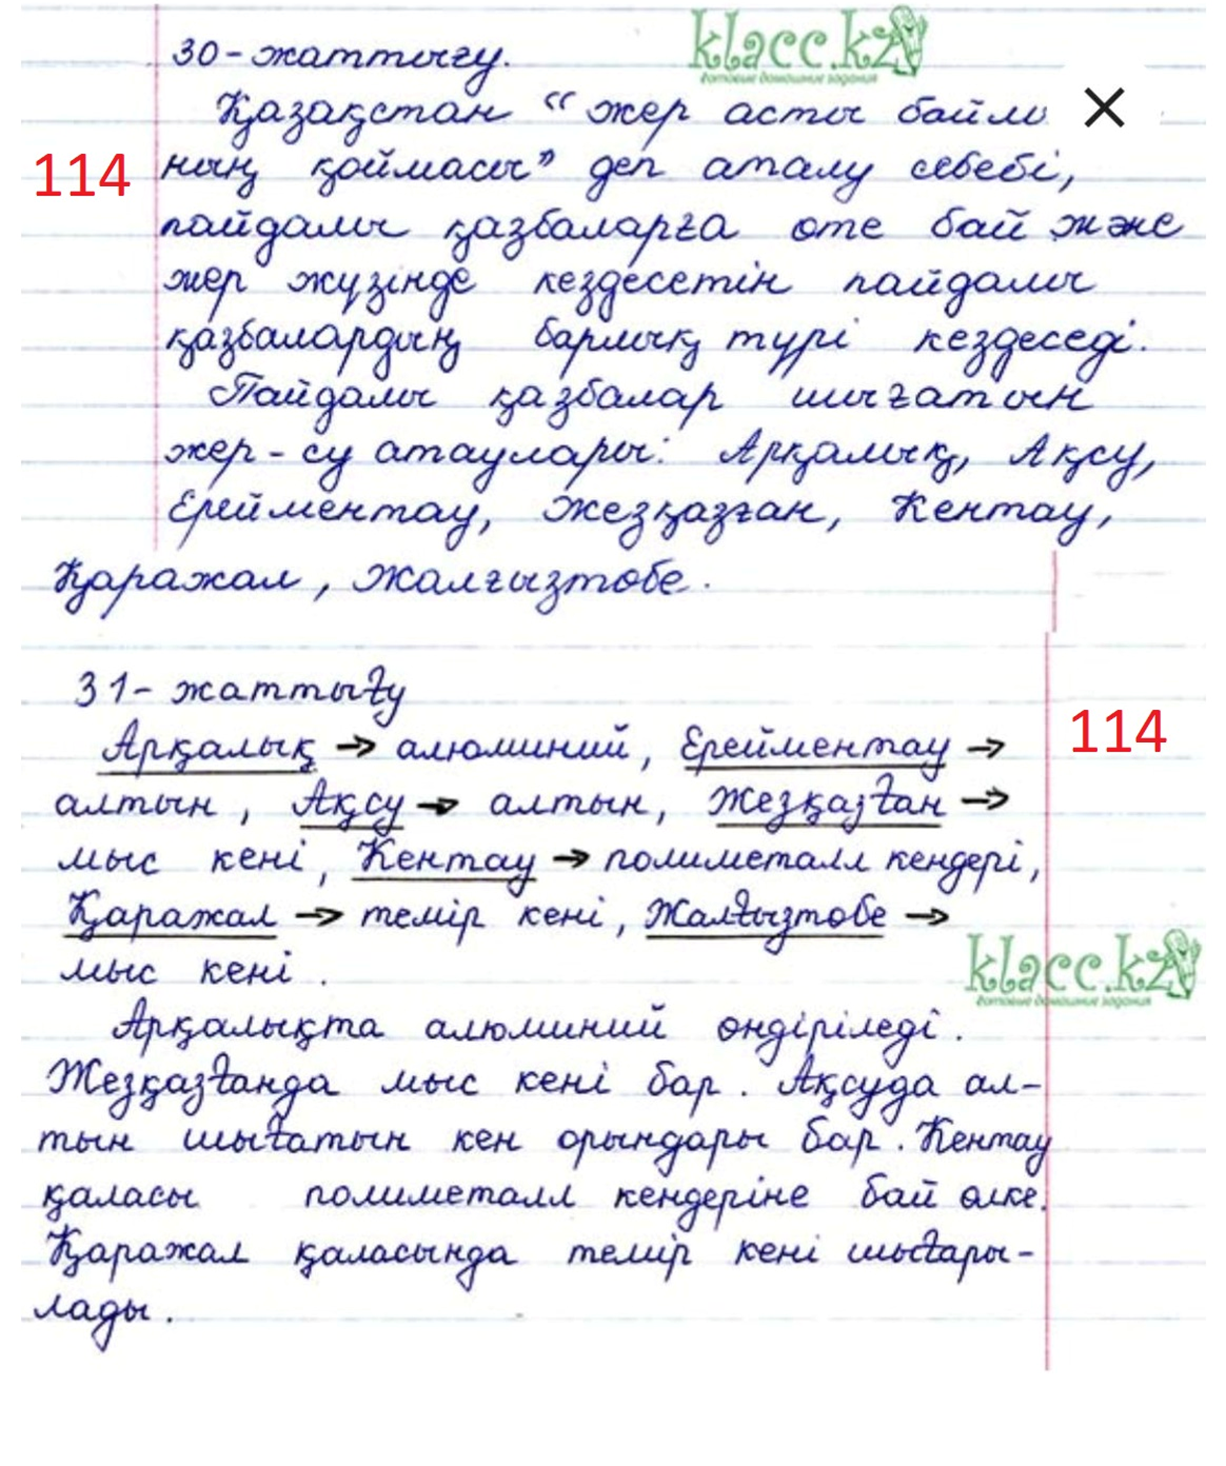 klacc.kz
готовые домашние задания
30-жаттығу.
Қазақстан "жер асты байлы
114
ның қоймасы" деп аталу себебі,
пайдалы қазбаларға өте бай және
жер жүзінде кездесетін пайдалы
қазбалардың барлық түрі кездеседі.
Пайдалы қазбалар шығатын
жер-су атаулары: Арқалық, Ақсу,
Ерейментау, Жезқазған, Кентау,
Қаражал, Жалғызтөбе.
31-жаттығу
114
Арқалық → алюминий, Ерейментау →
алтын, Ақсу → алтын, Жезқазған →
мыс кені, Кентау → полиметалл кендері,
Қаражал → темір кені, Жалғызтөбе →
мыс кені.
klacc.kz
готовые домашние задания
Арқалықта алюминий өндіріледі.
Жезқазғанда мыс кені бар. Ақсуда ал-
тын шығатын кен орындары бар. Кентау
қаласы полиметалл кендеріне бай өлке.
Қаражал қаласында темір кені шығары-
лады.